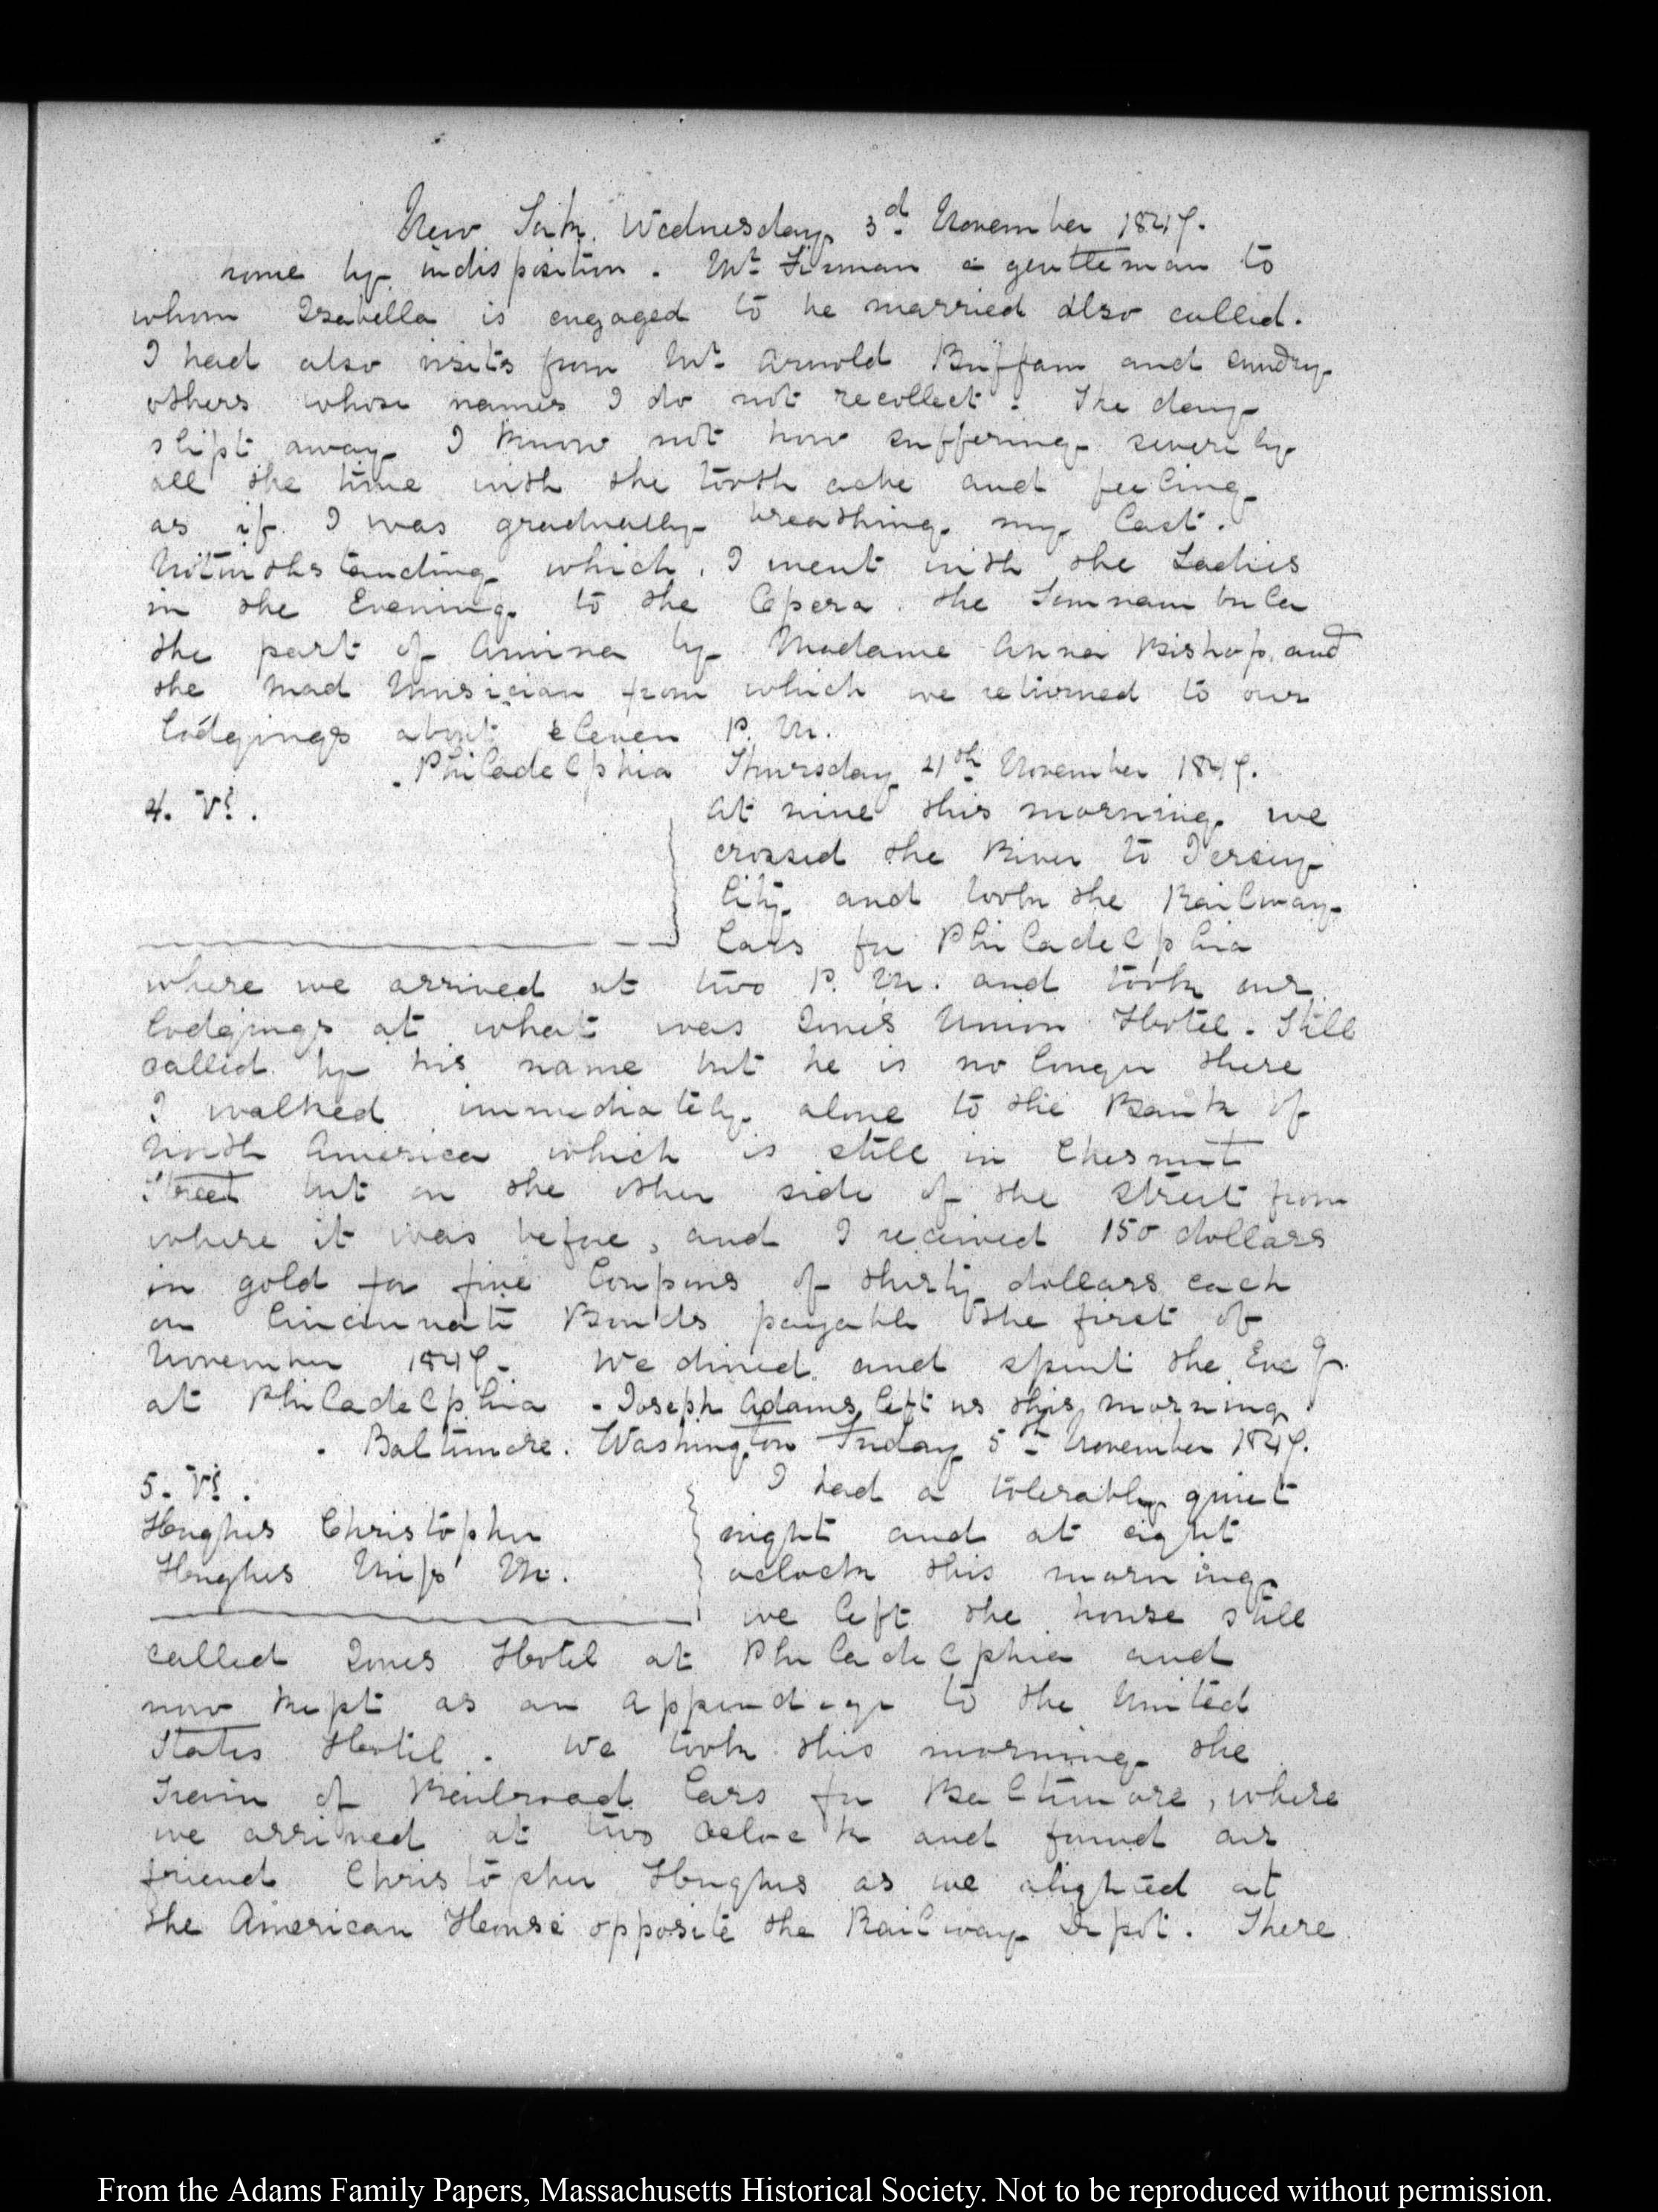 New York. Wednesday 3.d November 1847.
home by indisposition. Mr. Firman a gentleman to
whom Isabella is engaged to be married also called.
I had also visits from Mr. Arnold Buffam and sundry
others whose names I do not recollect. The day
slipt away I know not how suffering severely
all the time with the tooth ache and feeling
as if I was gradually breathing my last.
Notwithstanding which, I went with the Ladies
in the Evening to the Opera. the Somnambula
the part of Amina by Madame Anna Bishop, and
the Mad Musician from which we returned to our
lodgings about eleven P. M.
Philadelphia Thursday 4th November 1847.
4. V:
At nine this morning we
crossed the River to Jersey
City and took the Railway
Cars for Philadelphia
where we arrived at two P. M. and took our
lodgings at what was Jones's Union Hotel. Still
called by his name but he is no longer there
I walked immediately alone to the Bank of
North America which is still in Chesnut
Street but on the other side of the street from
where it was before, and I received 150 dollars
in gold for five Coupons of thirty dollars each
on Cincinnati Bonds payable the first of
November 1847. We dined and spent the Eveg.
at Philadelphia - Joseph Adams left us this morning
. Baltimore. Washington Friday 5th November 1847.
5. V:
Hughes Christopher
Hughes Miss M.
I had a tolerably quiet
night and at eight
oclock this morning
we left the house still
called Jones Hotel at Philadelphia and
now kept as an appendage to the United
States Hotel. We took this morning the
Train of Railroad Cars for Baltimore, where
we arrived at two oclock and found our
friend Christopher Hughes as we alighted at
the American House opposite the Railway Depot. There
From the Adams Family Papers, Massachusetts Historical Society. Not to be reproduced without permission.